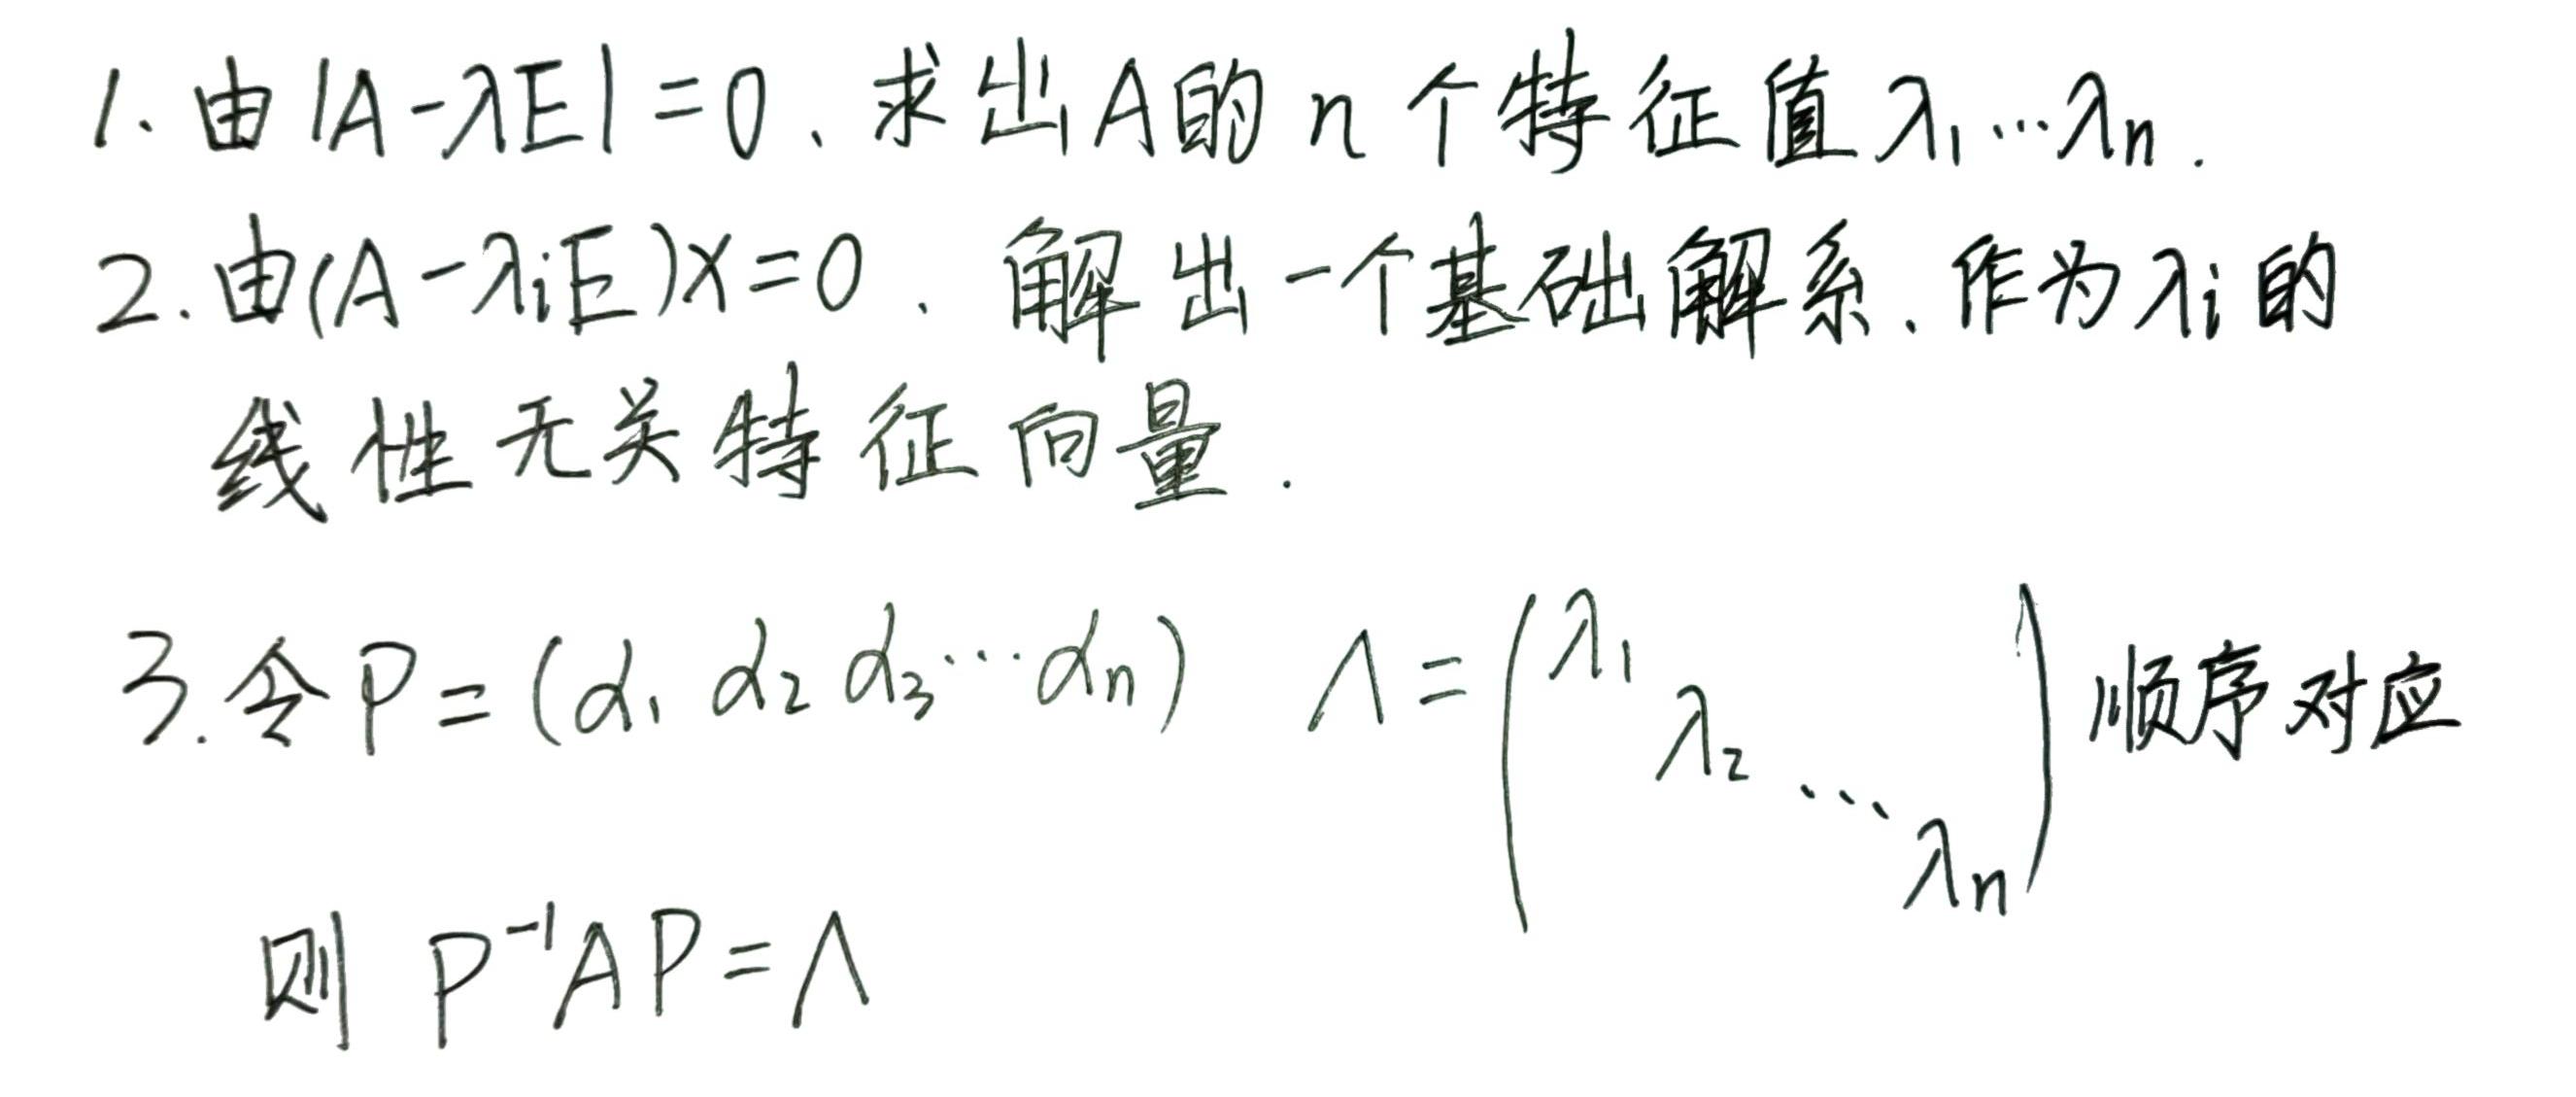 1. 由|A-λE|=0、求出A的n个特征值λ₁…λₙ.
2. 由(A-λᵢE)x=0、解出一个基础解系、作为λᵢ的
线性无关特征向量.
3. 令P=(α₁ α₂ α₃…αₙ) Λ=(λ₁ λ₂ ⋱ λₙ) 顺序对应
则 P⁻¹AP=Λ